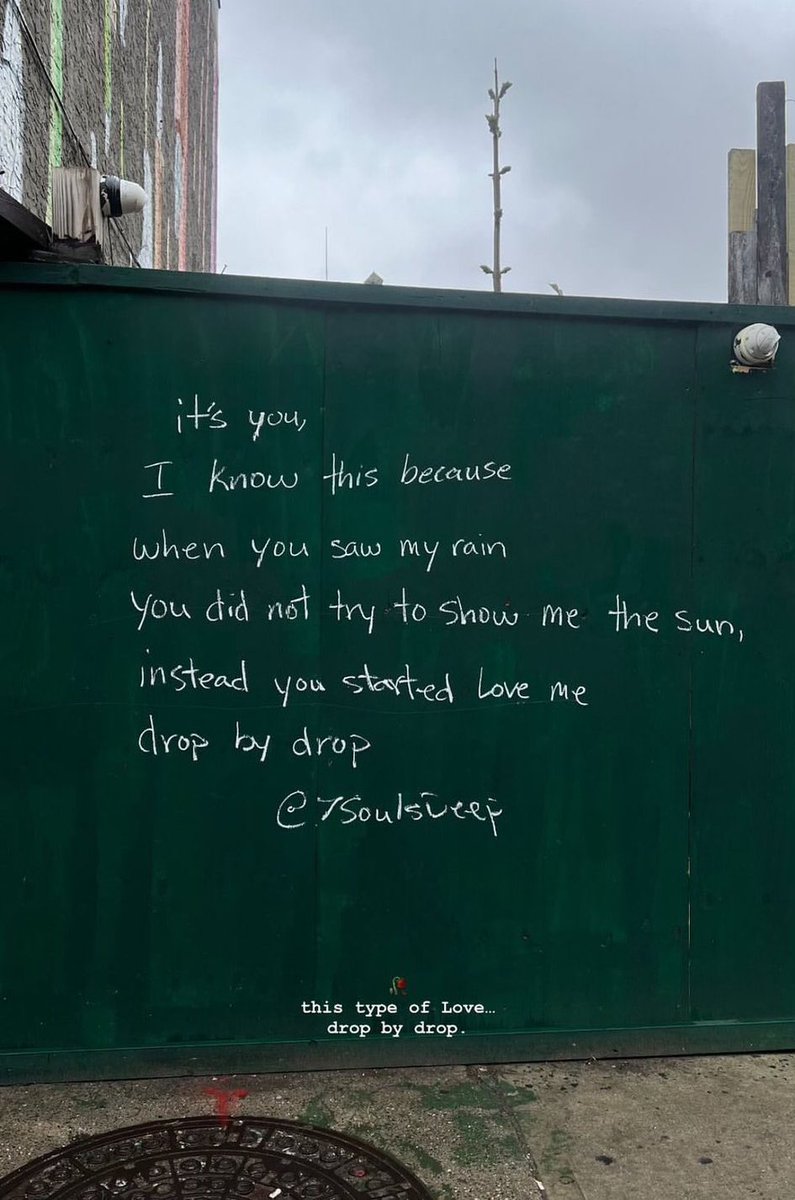 it's you,
I know this because
when you saw my rain
you did not try to show me the sun,
instead you started love me
drop by drop
@7soulsdeep
this type of Love…
drop by drop.